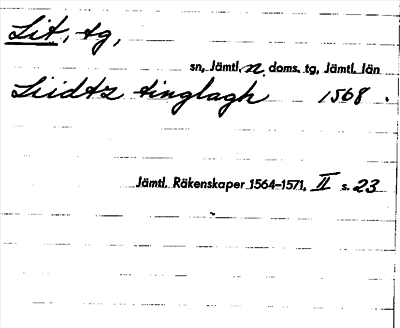 Lit, tg,
sn, Jämtl. n. doms. tg, Jämtl. län
Liidtz tinglagh 1568.
Jämtl. Räkenskaper 1564–1571, II s. 23